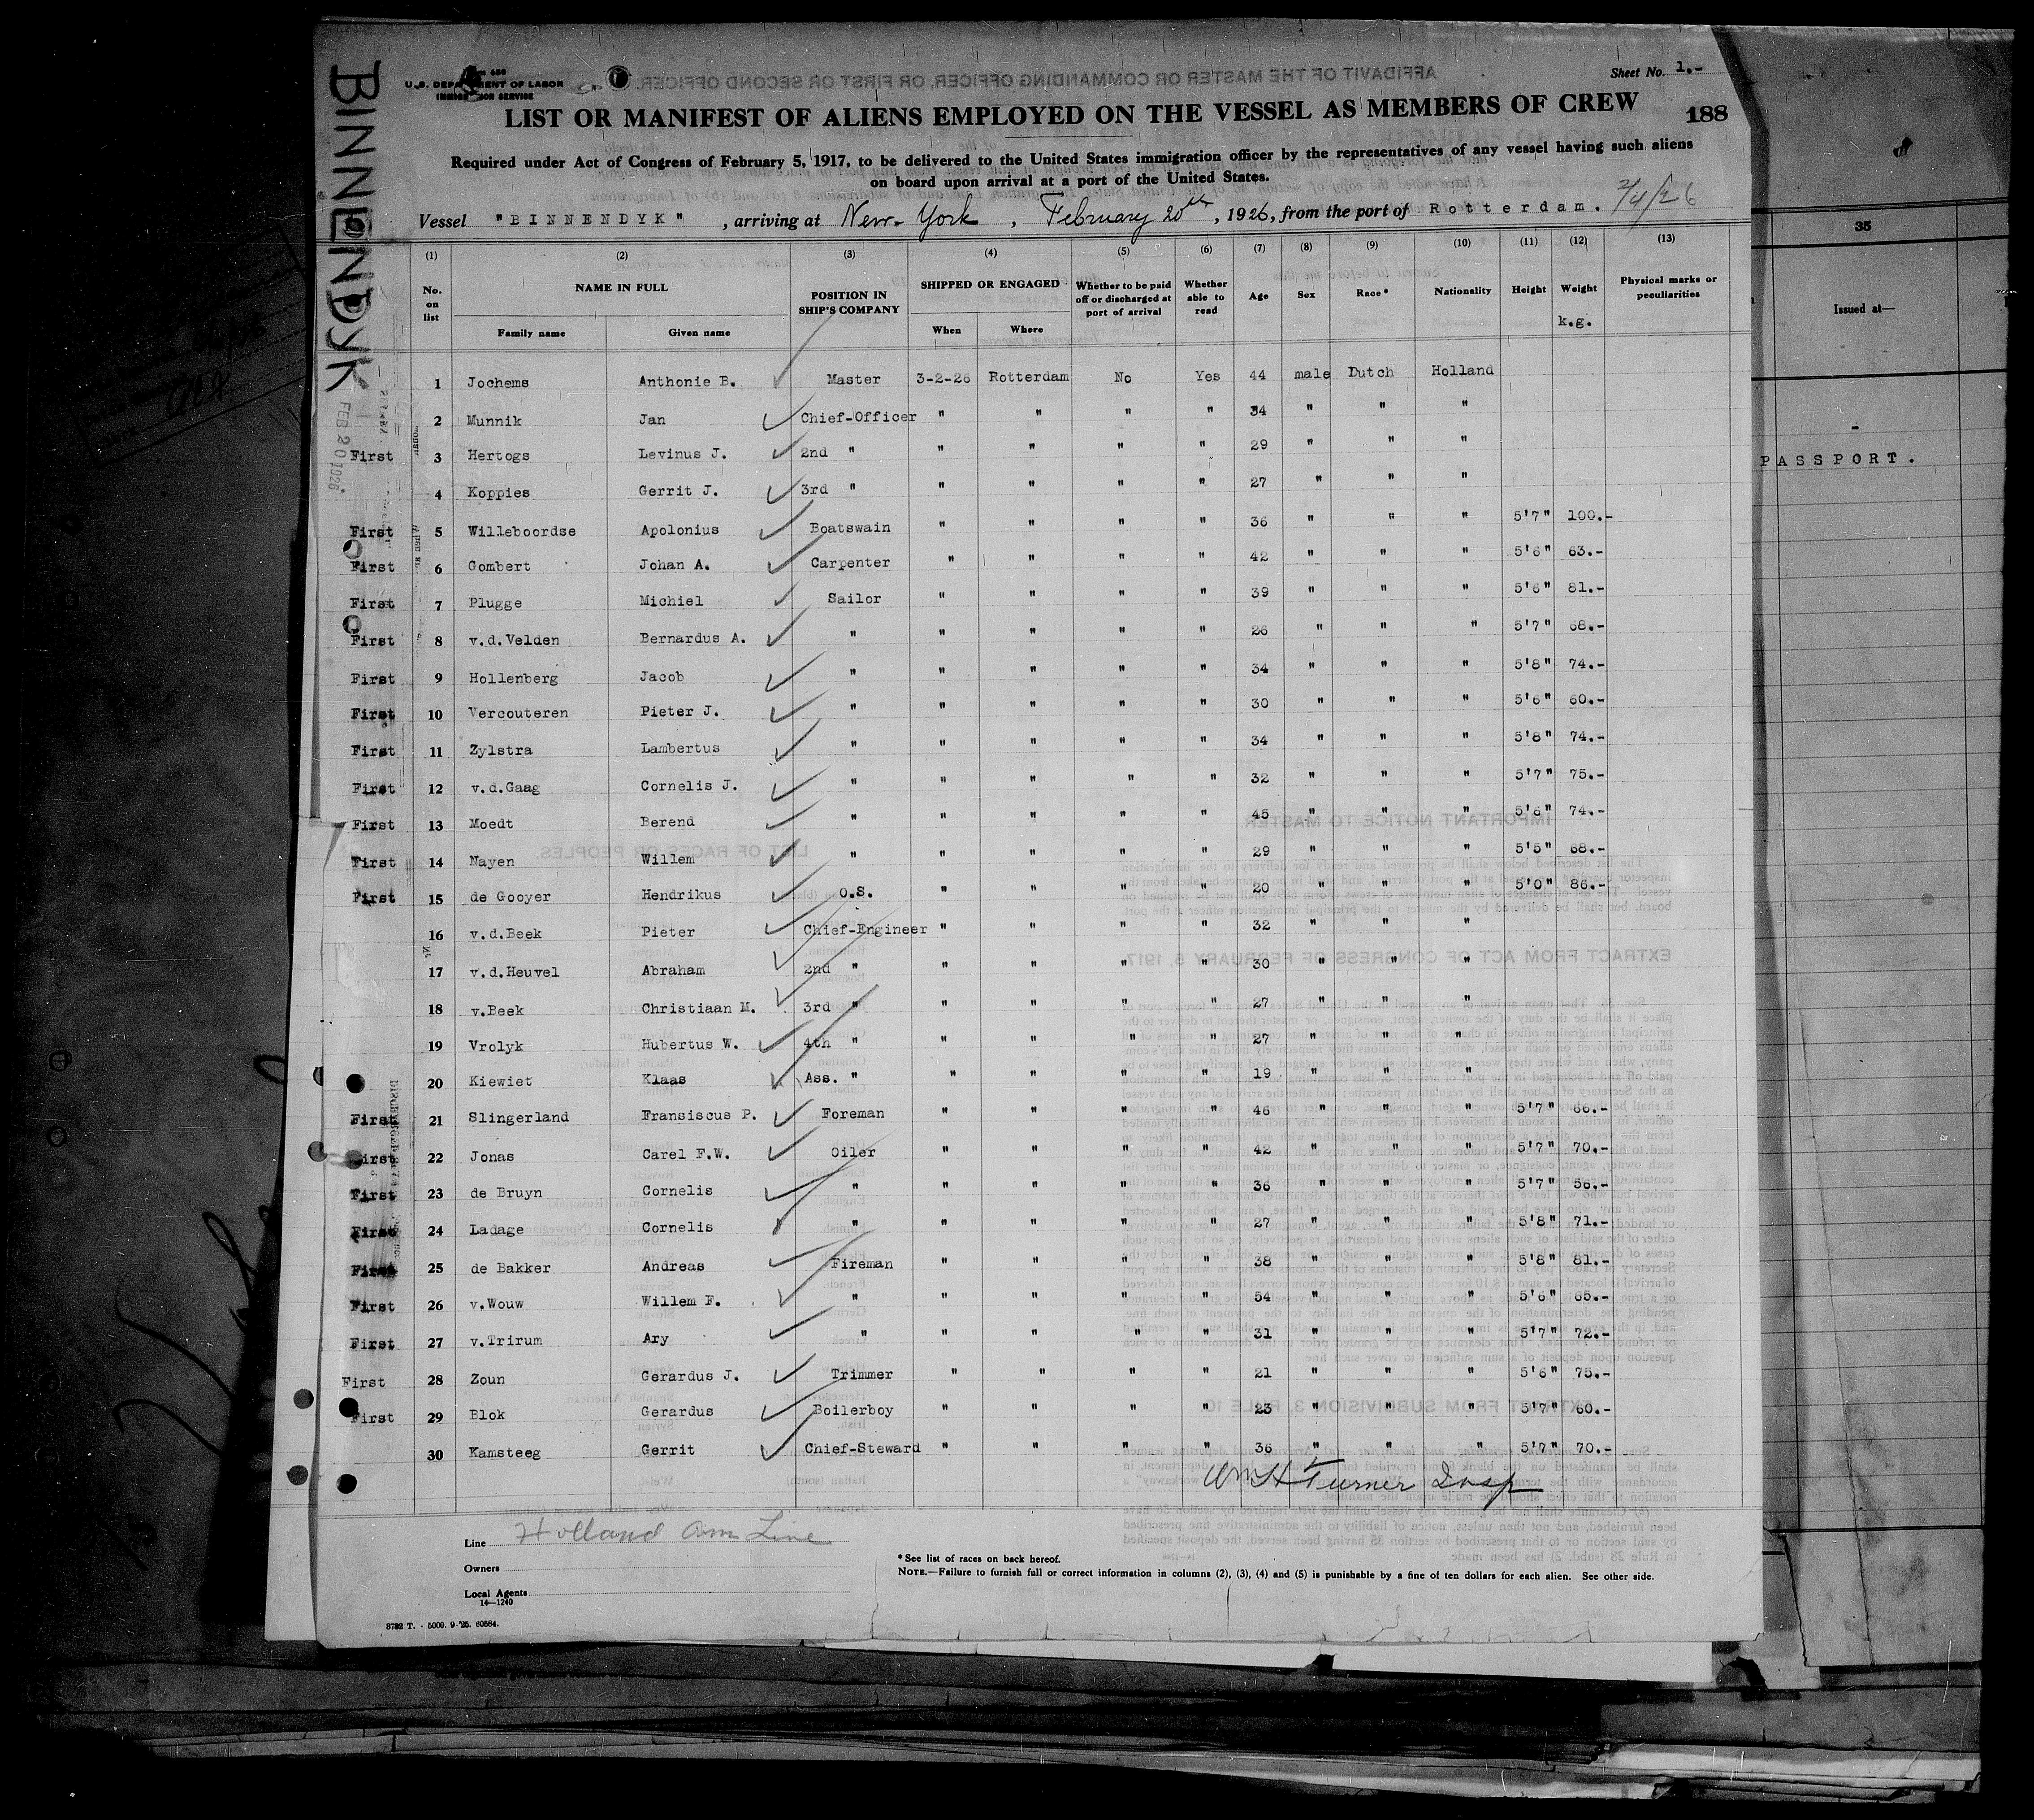 BINNENDYK
FEB 20 1926
U.S. DEPARTMENT OF LABOR
IMMIGRATION SERVICE
Sheet No. 1.-
LIST OR MANIFEST OF ALIENS EMPLOYED ON THE VESSEL AS MEMBERS OF CREW
188
Required under Act of Congress of February 5, 1917, to be delivered to the United States immigration officer by the representatives of any vessel having such aliens
on board upon arrival at a port of the United States.
Vessel "BINNENDYK" , arriving at New-York , February 20th , 1926, from the port of Rotterdam. 2/4/26
(1) (2) (3) (4) (5) (6) (7) (8) (9) (10) (11) (12) (13)
No. on list NAME IN FULL Family name Given name POSITION IN SHIP'S COMPANY SHIPPED OR ENGAGED When Where Whether to be paid off or discharged at port of arrival Whether able to read Age Sex Race* Nationality Height Weight k.g. Physical marks or peculiarities
1 Jochems Anthonie B. Master 3-2-26 Rotterdam No Yes 44 male Dutch Holland
2 Munnik Jan Chief-Officer " " " " 34 " " "
First 3 Hertogs Levinus J. 2nd " " " " " 29 " " "
4 Koppies Gerrit J. 3rd " " " " " 27 " " "
First 5 Willeboordse Apolonius Boatswain " " " " 36 " " " 5'7" 100.-
First 6 Gombert Johan A. Carpenter " " " " 42 " " " 5'6" 63.-
First 7 Plugge Michiel Sailor " " " " 39 " " " 5'6" 81.-
First 8 v.d.Velden Bernardus A. " " " " " 26 " " " 5'7" 68.-
First 9 Hollenberg Jacob " " " " " 34 " " " 5'8" 74.-
First 10 Vercouteren Pieter J. " " " " " 30 " " " 5'6" 60.-
First 11 Zylstra Lambertus " " " " " 34 " " " 5'8" 74.-
First 12 v.d.Gaag Cornelis J. " " " " " 32 " " " 5'7" 75.-
First 13 Moedt Berend " " " " " 45 " " " 5'6" 74.-
First 14 Nayen Willem " " " " " 29 " " " 5'5" 68.-
First 15 de Gooyer Hendrikus O.S. " " " " 20 " " " 5'0" 86.-
16 v.d.Beek Pieter Chief-Engineer " " " " 32 " " "
17 v.d.Heuvel Abraham 2nd " " " " " 30 " " "
18 v.Beek Christiaan M. 3rd " " " " " 27 " " "
19 Vrolyk Hubertus W. 4th " " " " " 27 " " "
20 Kiewiet Klaas Ass. " " " " " 19 " " "
First 21 Slingerland Fransiscus P. Foreman " " " " 46 " " " 5'7" 66.-
First 22 Jonas Carel F.W. Oiler " " " " 42 " " " 5'7" 70.-
First 23 de Bruyn Cornelis " " " " " 36 " " " 5'7" 56.-
First 24 Ladage Cornelis " " " " " 27 " " " 5'8" 71.-
First 25 de Bakker Andreas Fireman " " " " 38 " " " 5'8" 81.-
First 26 v.Wouw Willem F. " " " " " 54 " " " 5'6" 65.-
First 27 v.Trirum Ary " " " " " 31 " " " 5'7" 72.-
First 28 Zoun Gerardus J. Trimmer " " " " 21 " " " 5'6" 75.-
First 29 Blok Gerardus Boilerboy " " " " 23 " " " 5'7" 60.-
30 Kamsteeg Gerrit Chief-Steward " " " " 36 " " " 5'7" 70.-
Wm H Turner Insp
Line Holland Am Line
Owners
Local Agents
14—1240
*See list of races on back hereof.
NOTE.—Failure to furnish full or correct information in columns (2), (3), (4) and (5) is punishable by a fine of ten dollars for each alien. See other side.
3782 T. - 5000. 9-'25. 60584.
35
Issued at—
PASSPORT.